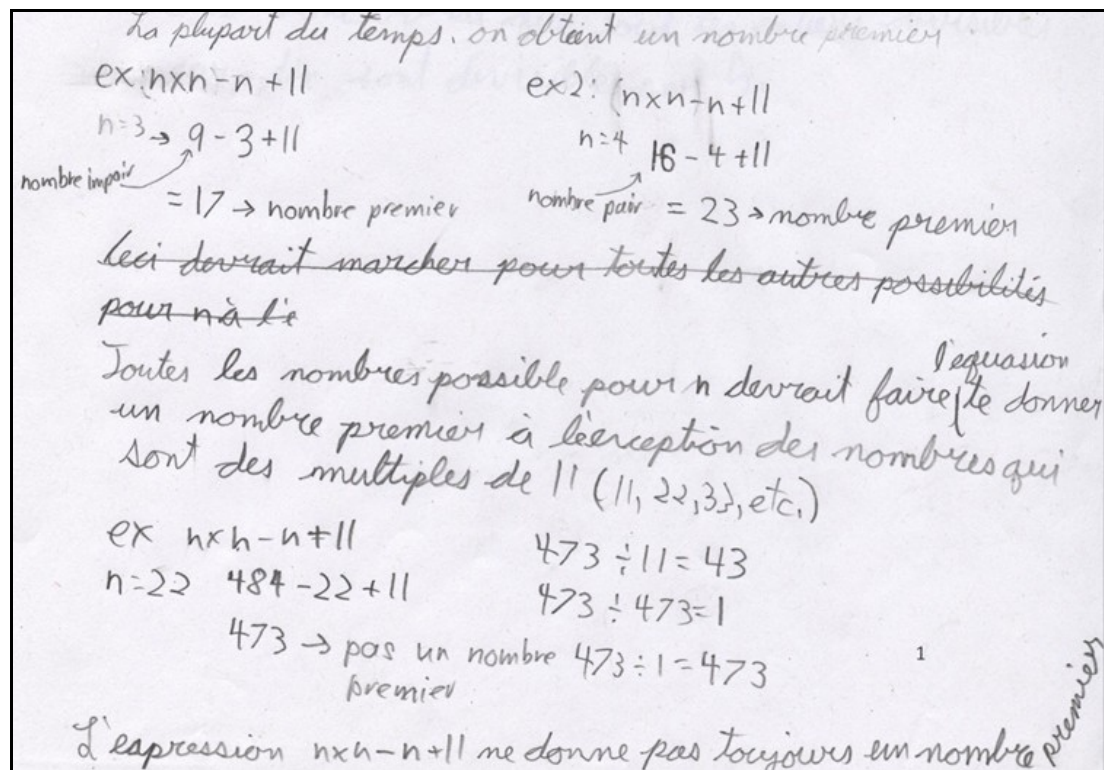 La plupart du temps, on obtient un nombre premier
ex: n×n-n+11
n=3→ 9-3+11
nombre impair
=17 → nombre premier
ex2: n×n-n+11
n=4 16-4+11
nombre pair
= 23 → nombre premier
Ceci devrait marcher pour toutes les autres possibilités
pour n à l'e
l'equasion
Toutes les nombres possible pour n devrait faire te donner
un nombre premier à l'éerception des nombres qui
sont des multiples de 11 (11, 22, 33, etc.)
ex n×n-n+11
n=22 484-22+11
473 → pas un nombre
premier
473÷11=43
473÷473=1
473÷1=473
1
L'expression n×n-n+11 ne donne pas toujours un nombre premier